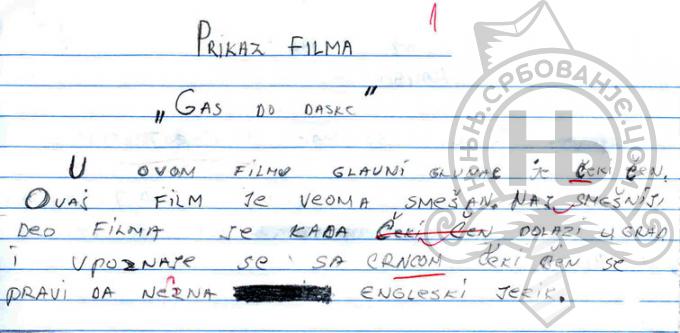 1
PRIKAZ FILMA
„GAS DO DASKE"
U OVOM FILMU GLAVNI GLUMAC JE ČEKI ČEN.
OVAJ FILM JE VEOMA SMEŠAN. NAJ SMEŠNIJI
DEO FILMA JE KADA ČEKI ČEN DOLAZI U GRAD
I UPOZNAJE SE SA CRNCOM ČEKI ČEN SE
PRAVI DA NEZNA ENGLESKI JEZIK.
WWW.СРБОВАЊЕ.ЦОМ
Њ